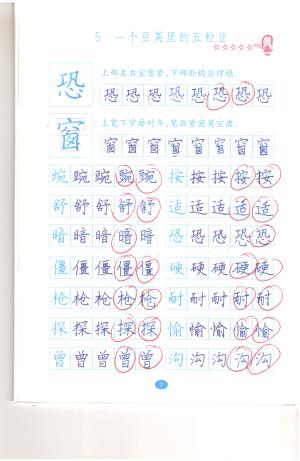 5 一个豆荚里的五粒豆
恐 上部左右宜靠紧，下部卧钩点撑稳。
恐恐恐恐恐恐恐恐
窗 上宽下窄要对齐，笔画紧密莫空虚。
窗窗窗窗窗窗窗窗
豌豌豌豌豌 按按按按按
舒舒舒舒舒 适适适适适
暗暗暗暗暗 恐恐恐恐恐
僵僵僵僵僵 硬硬硬硬硬
枪枪枪枪枪 耐耐耐耐耐
探探探探探 愉愉愉愉愉
曾曾曾曾曾 沟沟沟沟沟